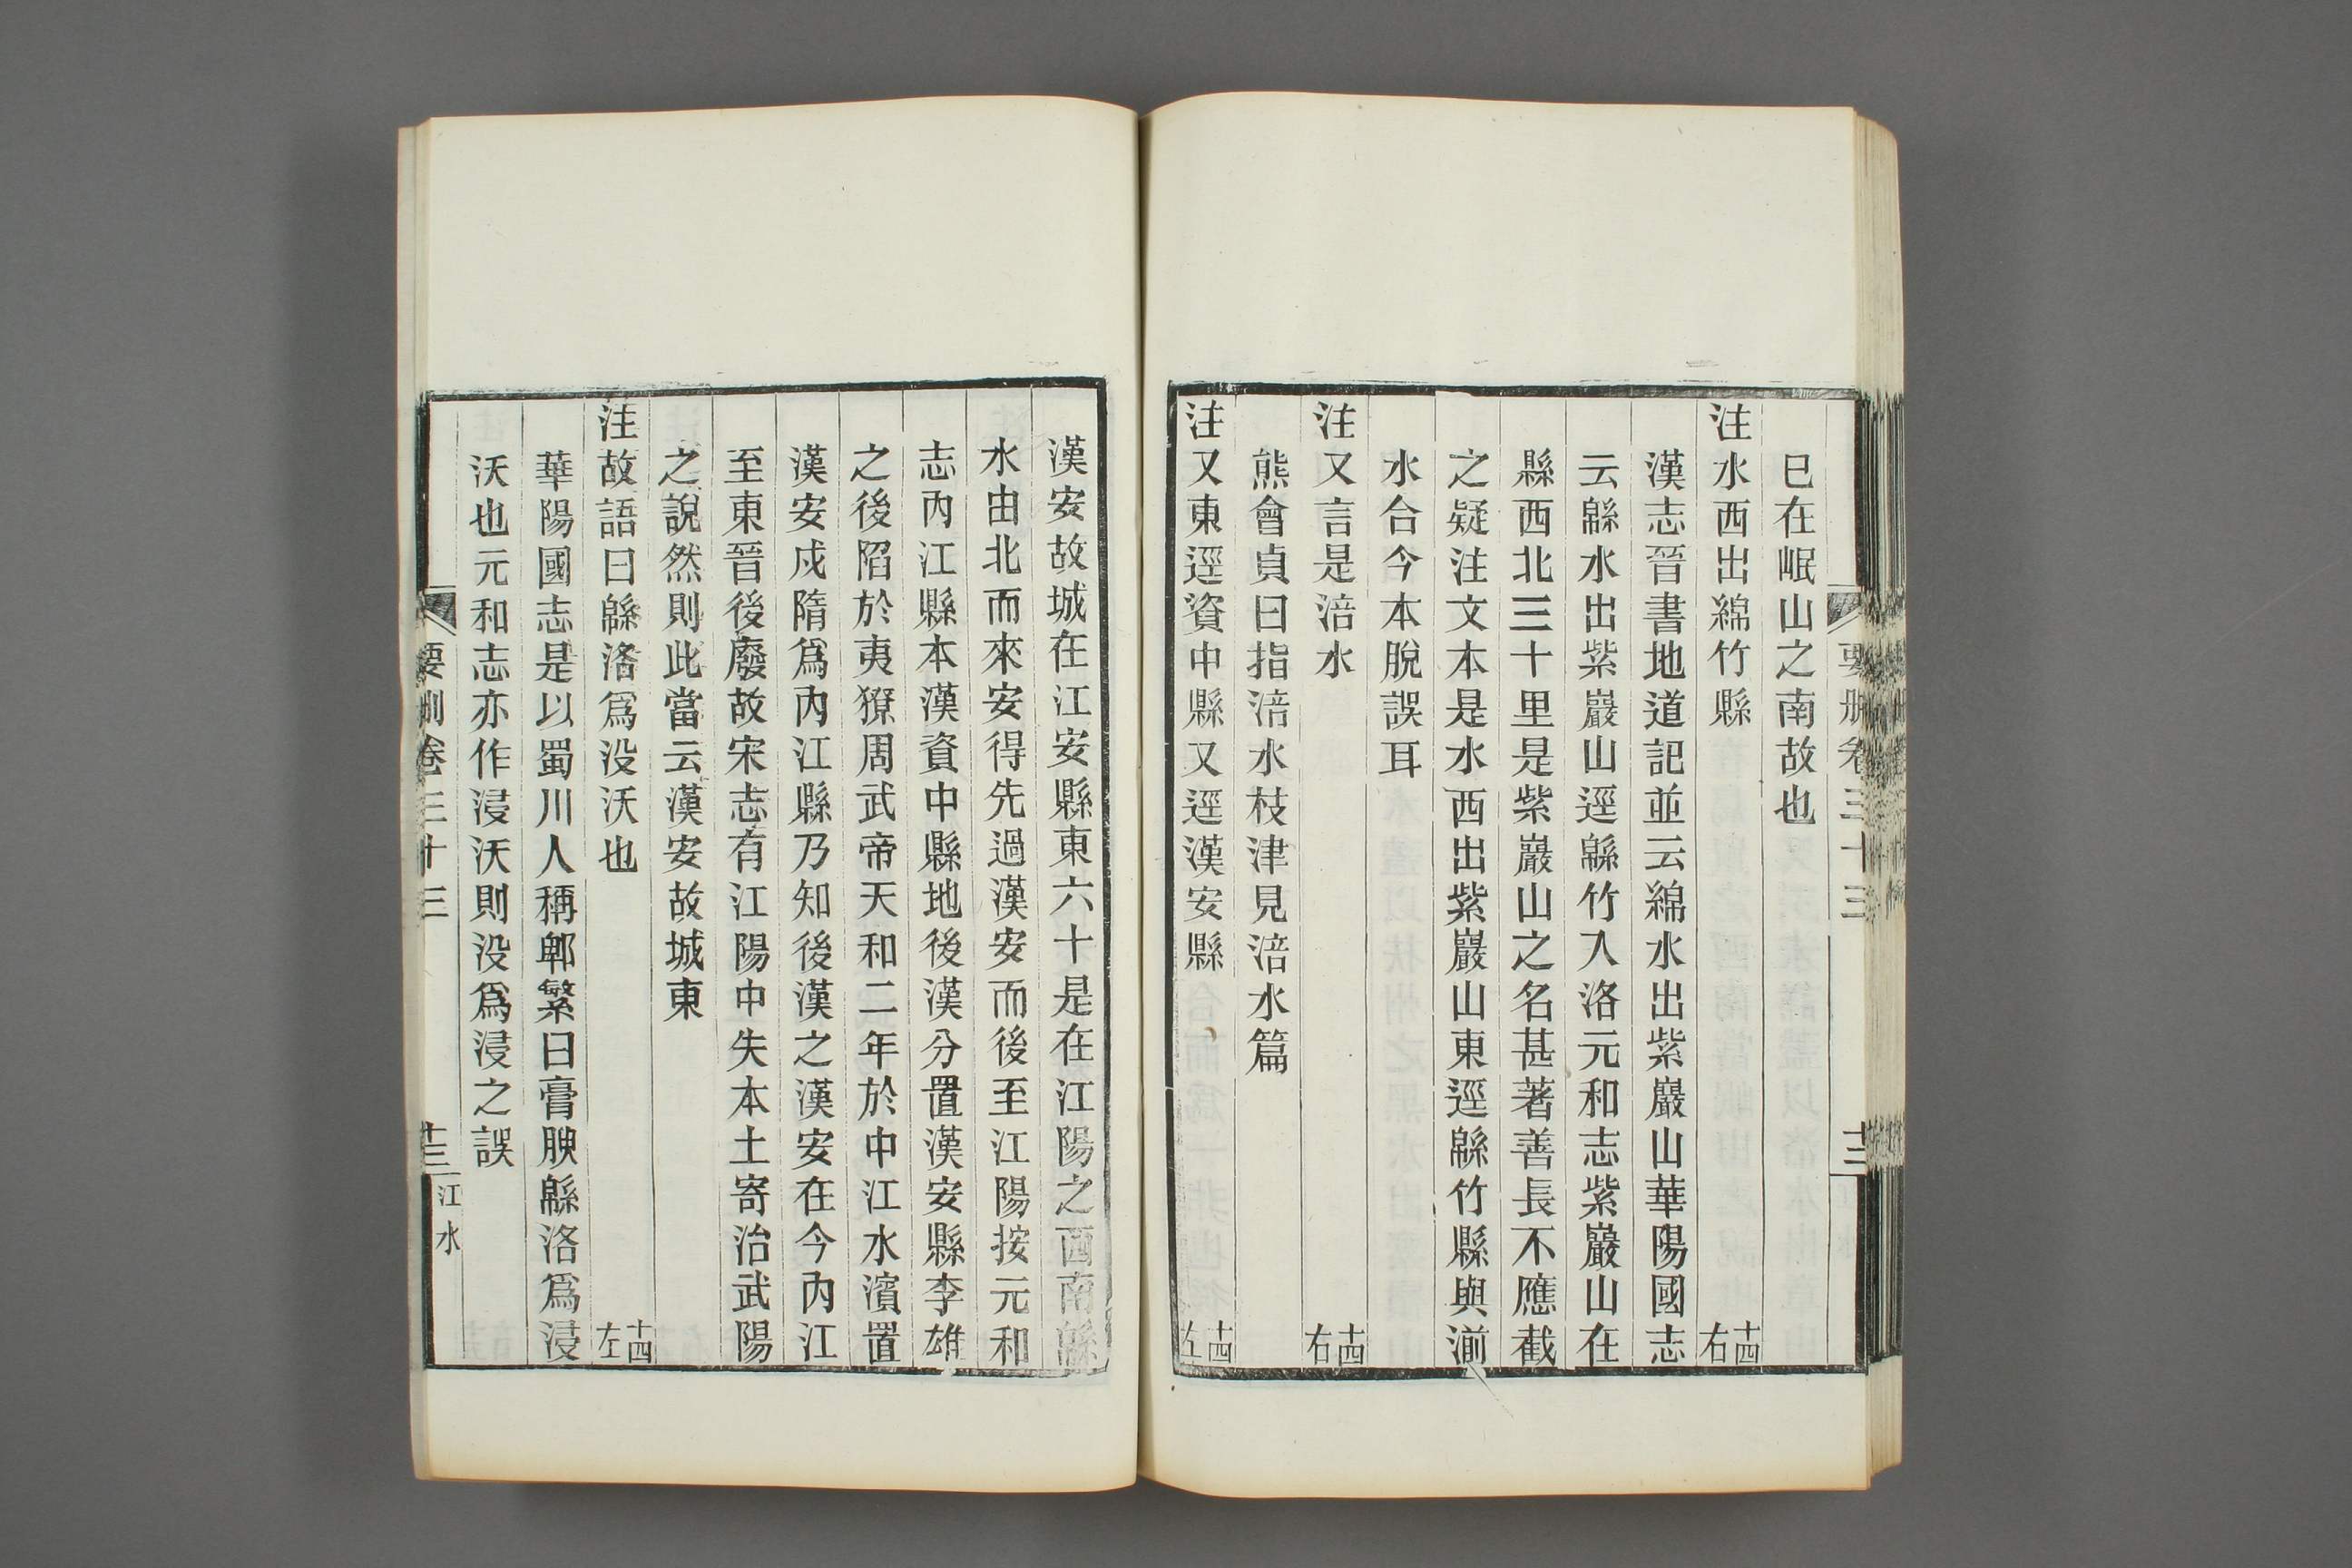 要刪卷三十三
十二
巳在岷山之南故也
注水西出綿竹縣 十四右
漢志晉書地道記並云綿水出紫巖山華陽國志
云緜水出紫巖山逕緜竹入洛元和志紫巖山在
縣西北三十里是紫巖山之名甚著善長不應截
之疑注文本是水西出紫巖山東逕緜竹縣與湔
水合今本脫誤耳
注又言是涪水 十四右
熊會貞曰指涪水枝津見涪水篇
注又東逕資中縣又逕漢安縣 十四左
漢安故城在江安縣東六十是在江陽之西南緜
水由北而來安得先過漢安而後至江陽按元和
志內江縣本漢資中縣地後漢分置漢安縣李雄
之後陷於夷獠周武帝天和二年於中江水濱置
漢安戍隋爲內江縣乃知後漢之漢安在今內江
至東晉後廢故宋志有江陽中失本土寄治武陽
之說然則此當云漢安故城東
注故語曰緜洛爲没沃也 十四左
華陽國志是以蜀川人稱郫繁曰膏腴緜洛爲浸
沃也元和志亦作浸沃則没爲浸之誤
要刪卷三十三
十三
江水